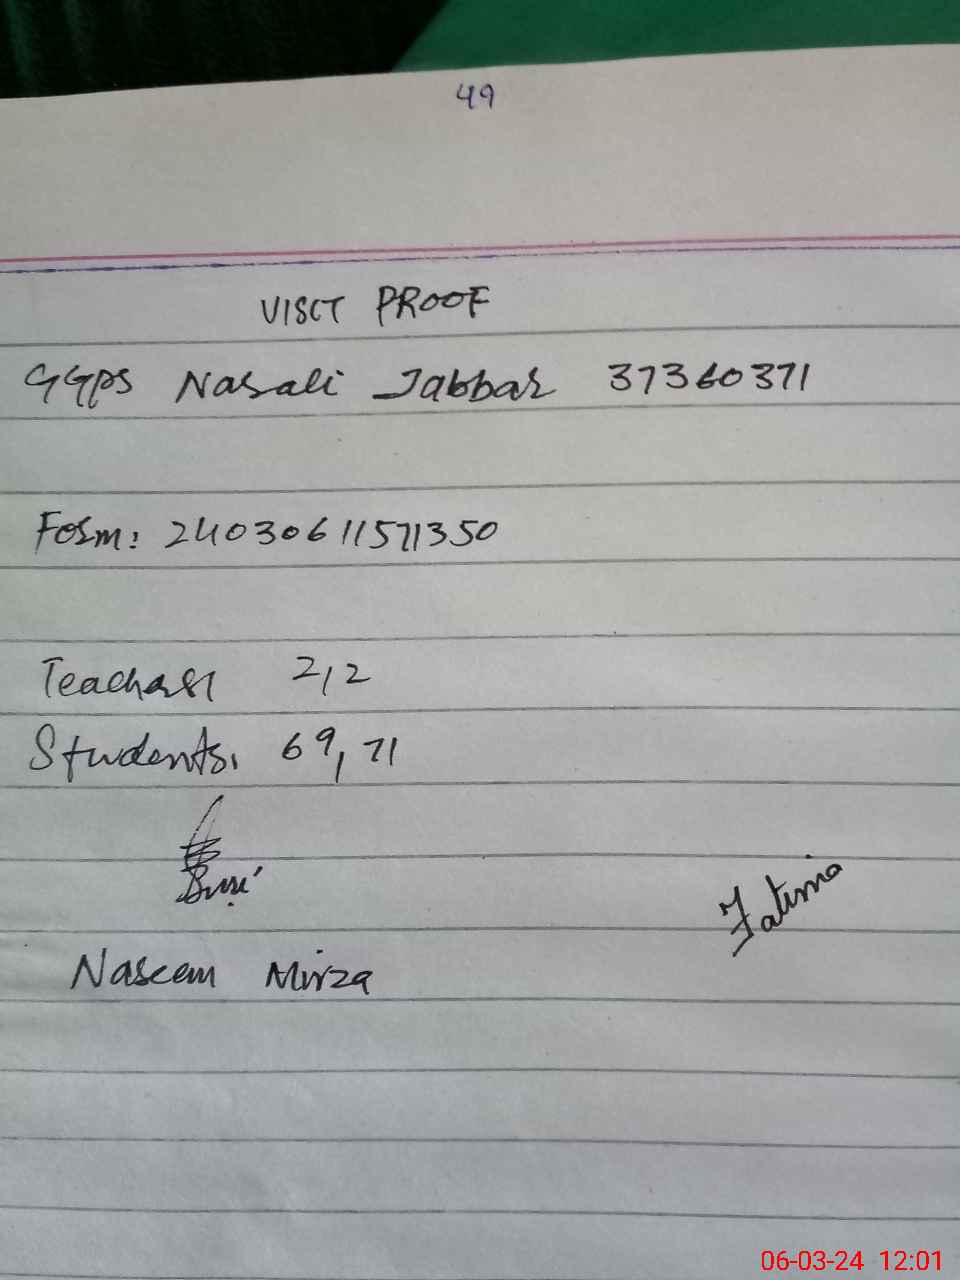 49
VISIT PROOF
GGPS Narali Jabbar 37360371
Form: 24030611571350
Teachers, 2,2
Students, 69, 71
Fatima
Naseem Mirza
06-03-24 12:01